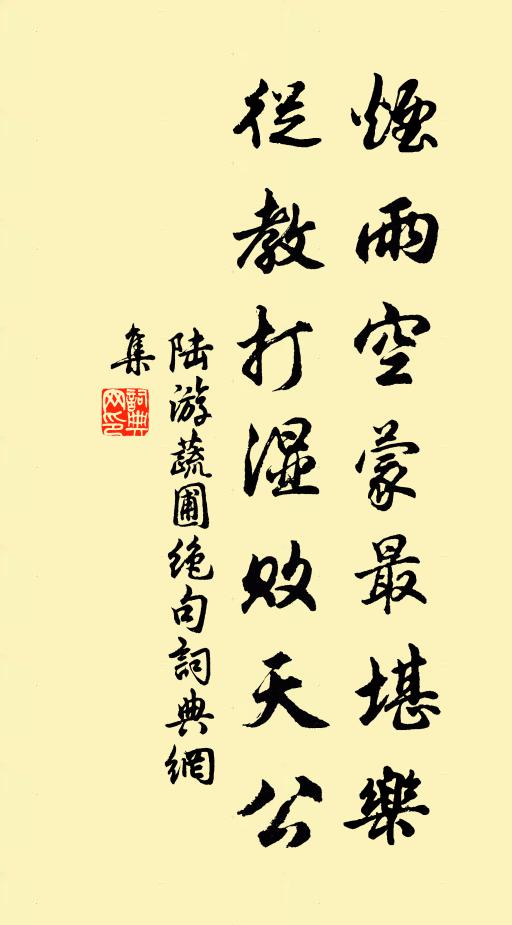 煙雨空蒙最堪樂
從教打濕敗天公
陆游蔬圃绝句詞典網
集
詞典
网印